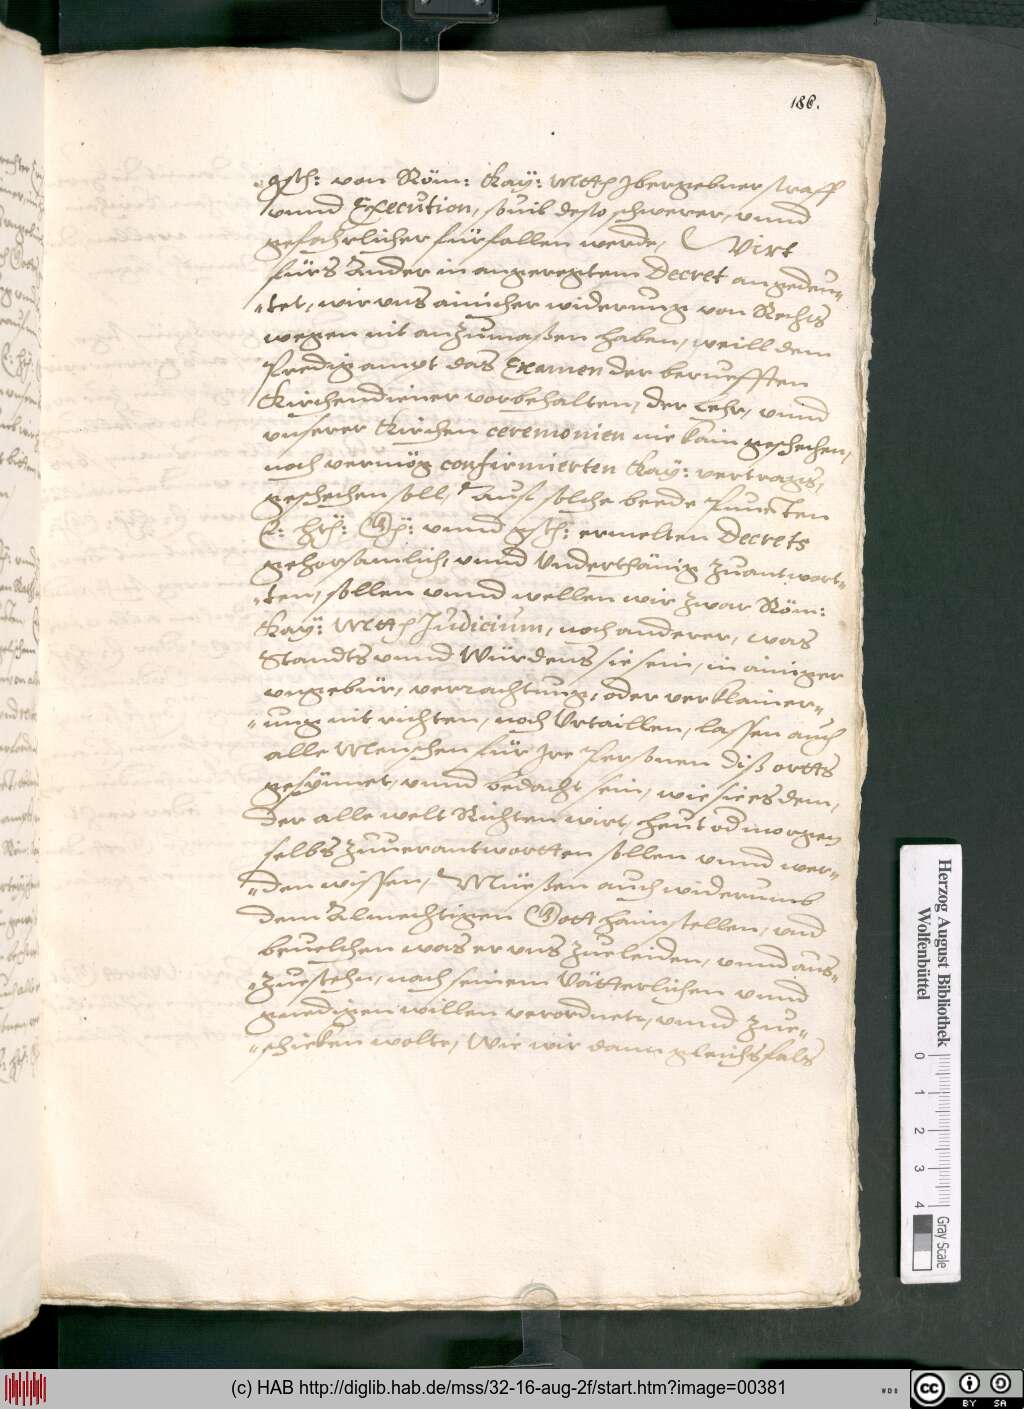 186.
gsth: von Röm: Kay: Mtt: Jbergebner straff
vnnd Execution, souil desto schwerer, vnnd
gefahrlicher fürfallen werde, Wirt
fürs Ander in angeregtem Decret angedeu=
=tet, wir vns ainicher widerung von Rechts
wegen nit anzumaßen haben, weill dem
Predigampt das Examen der beruefften
Kirchendiener vorbehalten, der Lehr, vnnd
vnserer Kirchen ceremonien nie kain geschechen,
noch vermög confirmierten Kay: vertrags,
geschechen soll, Auff solche beede Puncten
E: Hr: G: vnnd gsth: ermelten Decrets
gehorsamlich, vnnd Vnderthänig zuantwort=
=ten, sollen vnnd wellen wir zwar Röm:
Kay: Mtt: Judicium, noch anderer, was
Standts vnnd Würdens sie sein, in ainiger
vngebür, verrachtung, oder verklainer=
=ung nit richten, noch Vrtaillen, lassen auch
alle Menschen für Jre Persohnen diß ortts
gesynnet, vnnd bedacht sein, wie sie es dem,
der alle welt Richten wirt, heut od morgen
selbs zuuerantwortten sollen vnnd wer=
=den wissen, Müeßen auch widerumb
dem Almechtigen Gott haimstellen, vnd
beuelchen was er vns zue leiden, vnnd aus=
=zuestehn, nach seinem Vätterlichen vnnd
gnedigen willen verordnet, vnnd zue=
=schicken wolte, Wie wir dann gleichsfals
Herzog August Bibliothek
Wolfenbüttel
0 1 2 3 4
Gray Scale
(c) HAB http://diglib.hab.de/mss/32-16-aug-2f/start.htm?image=00381
WDB
cc BY SA